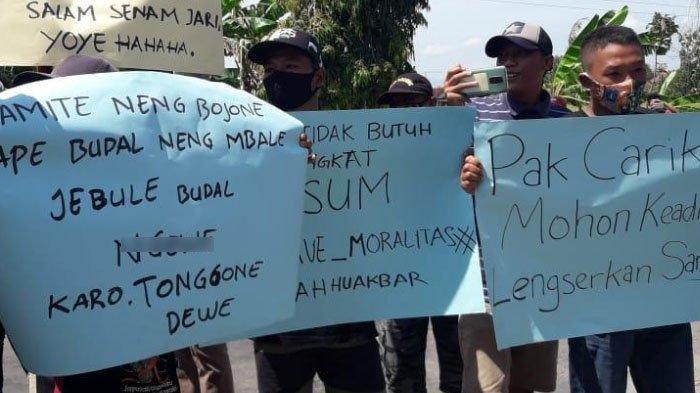 SALAM SENAM JARI,
YOYE HAHAHA.
AMITE NENG BOJONE
APE BUDAL NENG MBALE
JEBULE BUDAL
KARO. TONGGONE
DEWE
TIDAK BUTUH
GKAT
SUM
AVE_MORALITAS
AHHUAKBAR
Pak Carik
Mohon Keadi
Lengserkan Sa